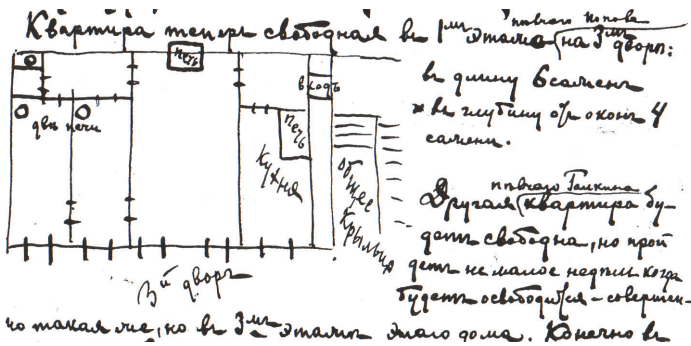 пѣвчаго Попова
Квартира теперь свободная въ 1мъ этажѣ (на 3мъ дворѣ:
печь
входъ
двѣ печи
печь
кухня
общее крыльцо
3й дворъ
въ длину 6 сажень
въ глубину отъ оконъ 4
сажени.
пѣвчаго Галкина
Другая (квартира бу-
детъ свободна, но прой
детъ не малое недѣль когда
будетъ освободится - совершен-
но такая же, но въ 3мъ этажѣ этаго дома. Конечно въ